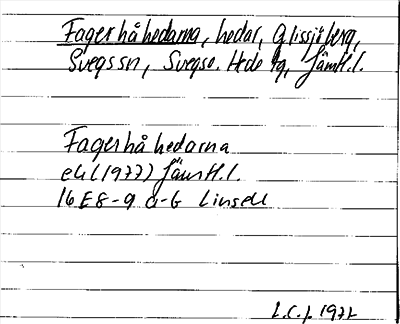 Fagerhåhedarna, hedar, Glissjöberg,
Svegssn, Svegs o. Hede tg, Jämtl. l.
Fagerhåhedarna
ek (1977) Jämtl. l.
16E 8-9 a-b Linsell
L.C.J. 1977